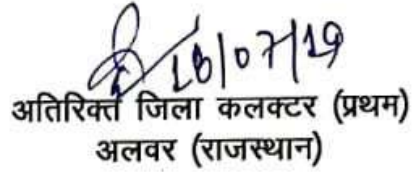 18/07/19
अतिरिक्त जिला कलक्टर (प्रथम)
अलवर (राजस्थान)